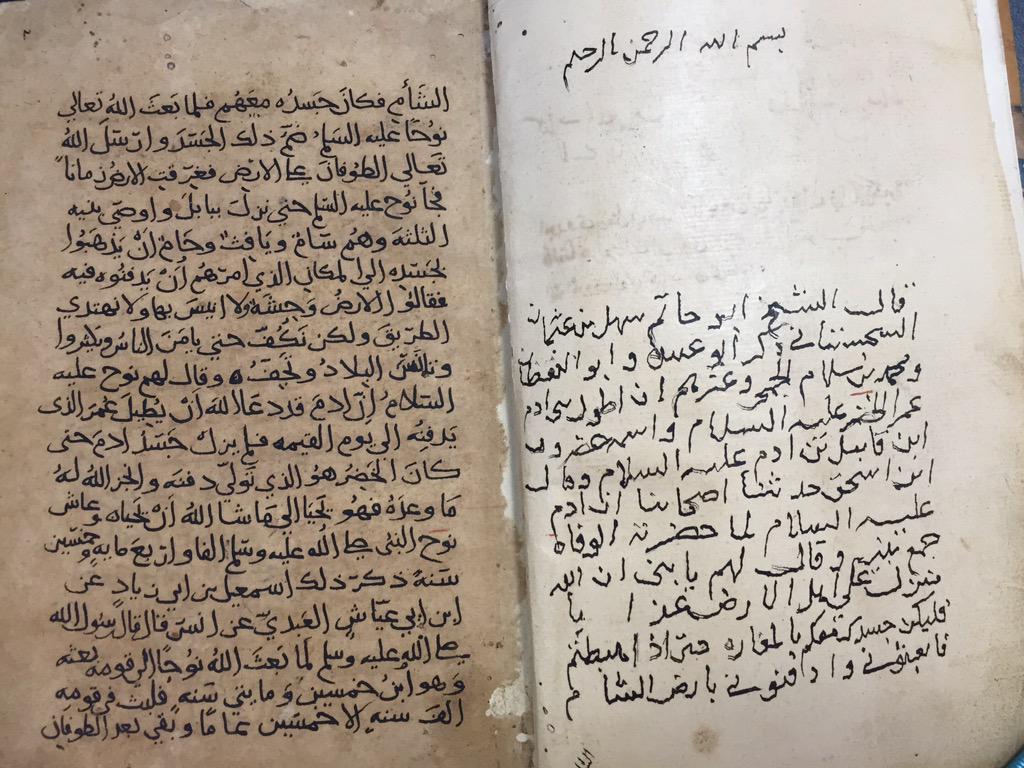 بسم الله الرحمن الرحيم
قالـ الشيخ ابو حاتم سهل بن عثمان
السجستاني ذكر ابو عبيدة وابو اليقظان
ومحمد بن سلام الجمحي وغيرهم ان اطول بني ادم
عمر الخضر عليه السلام واسمه خضرون
ابن قابيل بن ادم عليه السلام وقال
ابن اسحق حدثنا اصحابنا ان ادم
عليه السلام لما حضرته الوفاة
جمع بنيه وقال لهم يا بني ان الله
منزل على اهل الارض عذا با
فليكن جسدي معكم بالمغارة حتى اذا اهبطتم
فابعثوني وادفنوني بارض الشا م
الشأم فكان جسده معهم فلما بعث الله تعالى
نوحا عليه السلم ضم ذلك الجسد وارسل الله
تعالي الطوفان على الارض فغرقت الارض زمانا
فجا نوح عليه السلم حتى نزل ببابل واوصي بنيه
الثلثة وهم سام ويافث وحام ان يذهبوا
بجسده الي المكان الذي امرهم ان يدفنوه فيه
فقالوا الارض وحشة ولا انيس بها ولا نهتدي
الطريق ولكن نكف حتى يامن الناس ويكثروا
وتانس البلاد وتجف وقال لهم نوح عليه
السلام ان ادم قد دعا الله ان يطيل عمر الذى
يدفنه الى يوم القيمه فلم يزل جسد ادم حتى
كان الخضر هو الذي تولى دفنه وانجز الله له
ما وعده فهو يحيا الى ماشا الله ان يحياه وعاش
نوح النبى صلى الله عليه وسلم الفا واربع مايه وخمسين
سنة ذكر ذلك اسمعيل بن ابي زياد عن
ابن ابي عياش العبدي عن انس قال قال رسول الله
صلى الله عليه وسلم لما بعث الله نوحا الى قومه بعثه
وهو ابن خمسين ومايتي سنه فلبث في قومه
الف سنه الا خمسين عاما وبقي بعد الطوفان